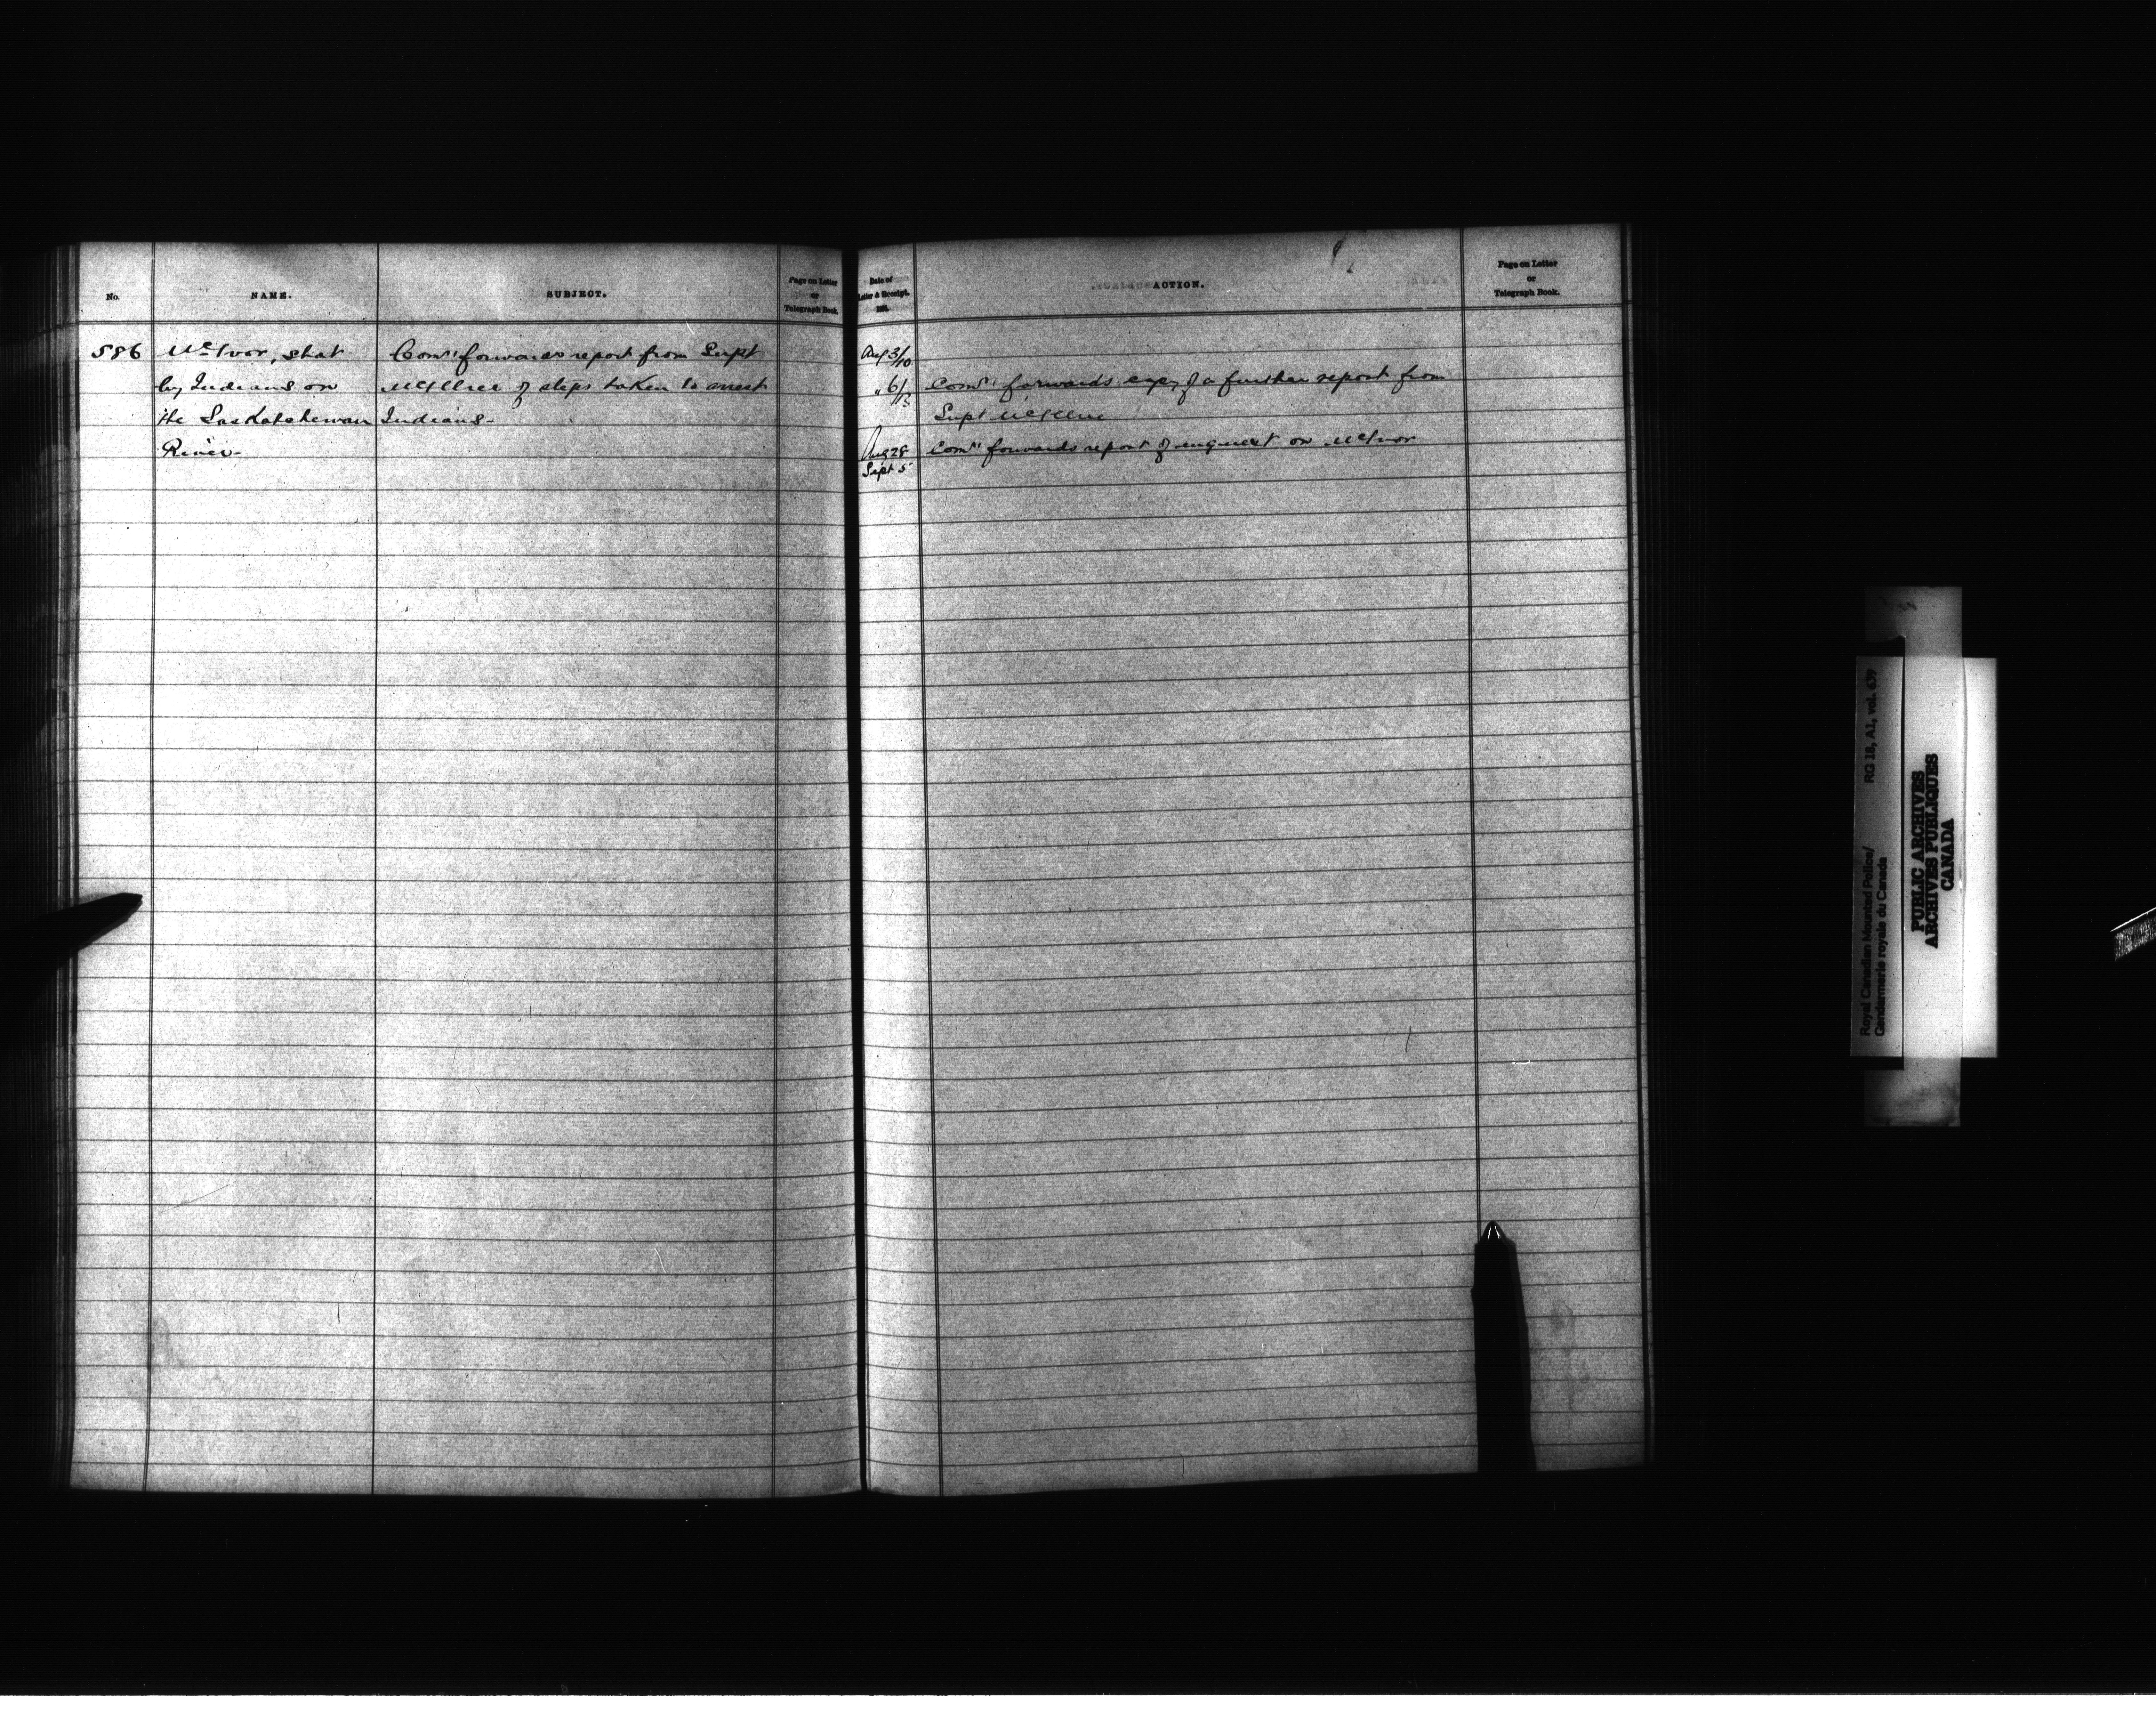 No.
NAME.
SUBJECT.
Page on Letter
or
Telegraph Book.
586
McIvor, shot
by Indians on
the Saskatchewan
River-
Comr forwards report from Supt
McIllree of steps taken to arrest
Indians-
Date of
Letter & Receipt.
188
ACTION.
Page on Letter
or
Telegraph Book.
Aug 3/10
" 6/13 Comr forwards copy of a further report from
Supt McIllree
Aug 28 Comr forwards report of inquest on McIvor
Sept 5
Royal Canadian Mounted Police/ RG 18, A1, vol. 639
Gendarmerie royale du Canada
PUBLIC ARCHIVES
ARCHIVES PUBLIQUES
CANADA